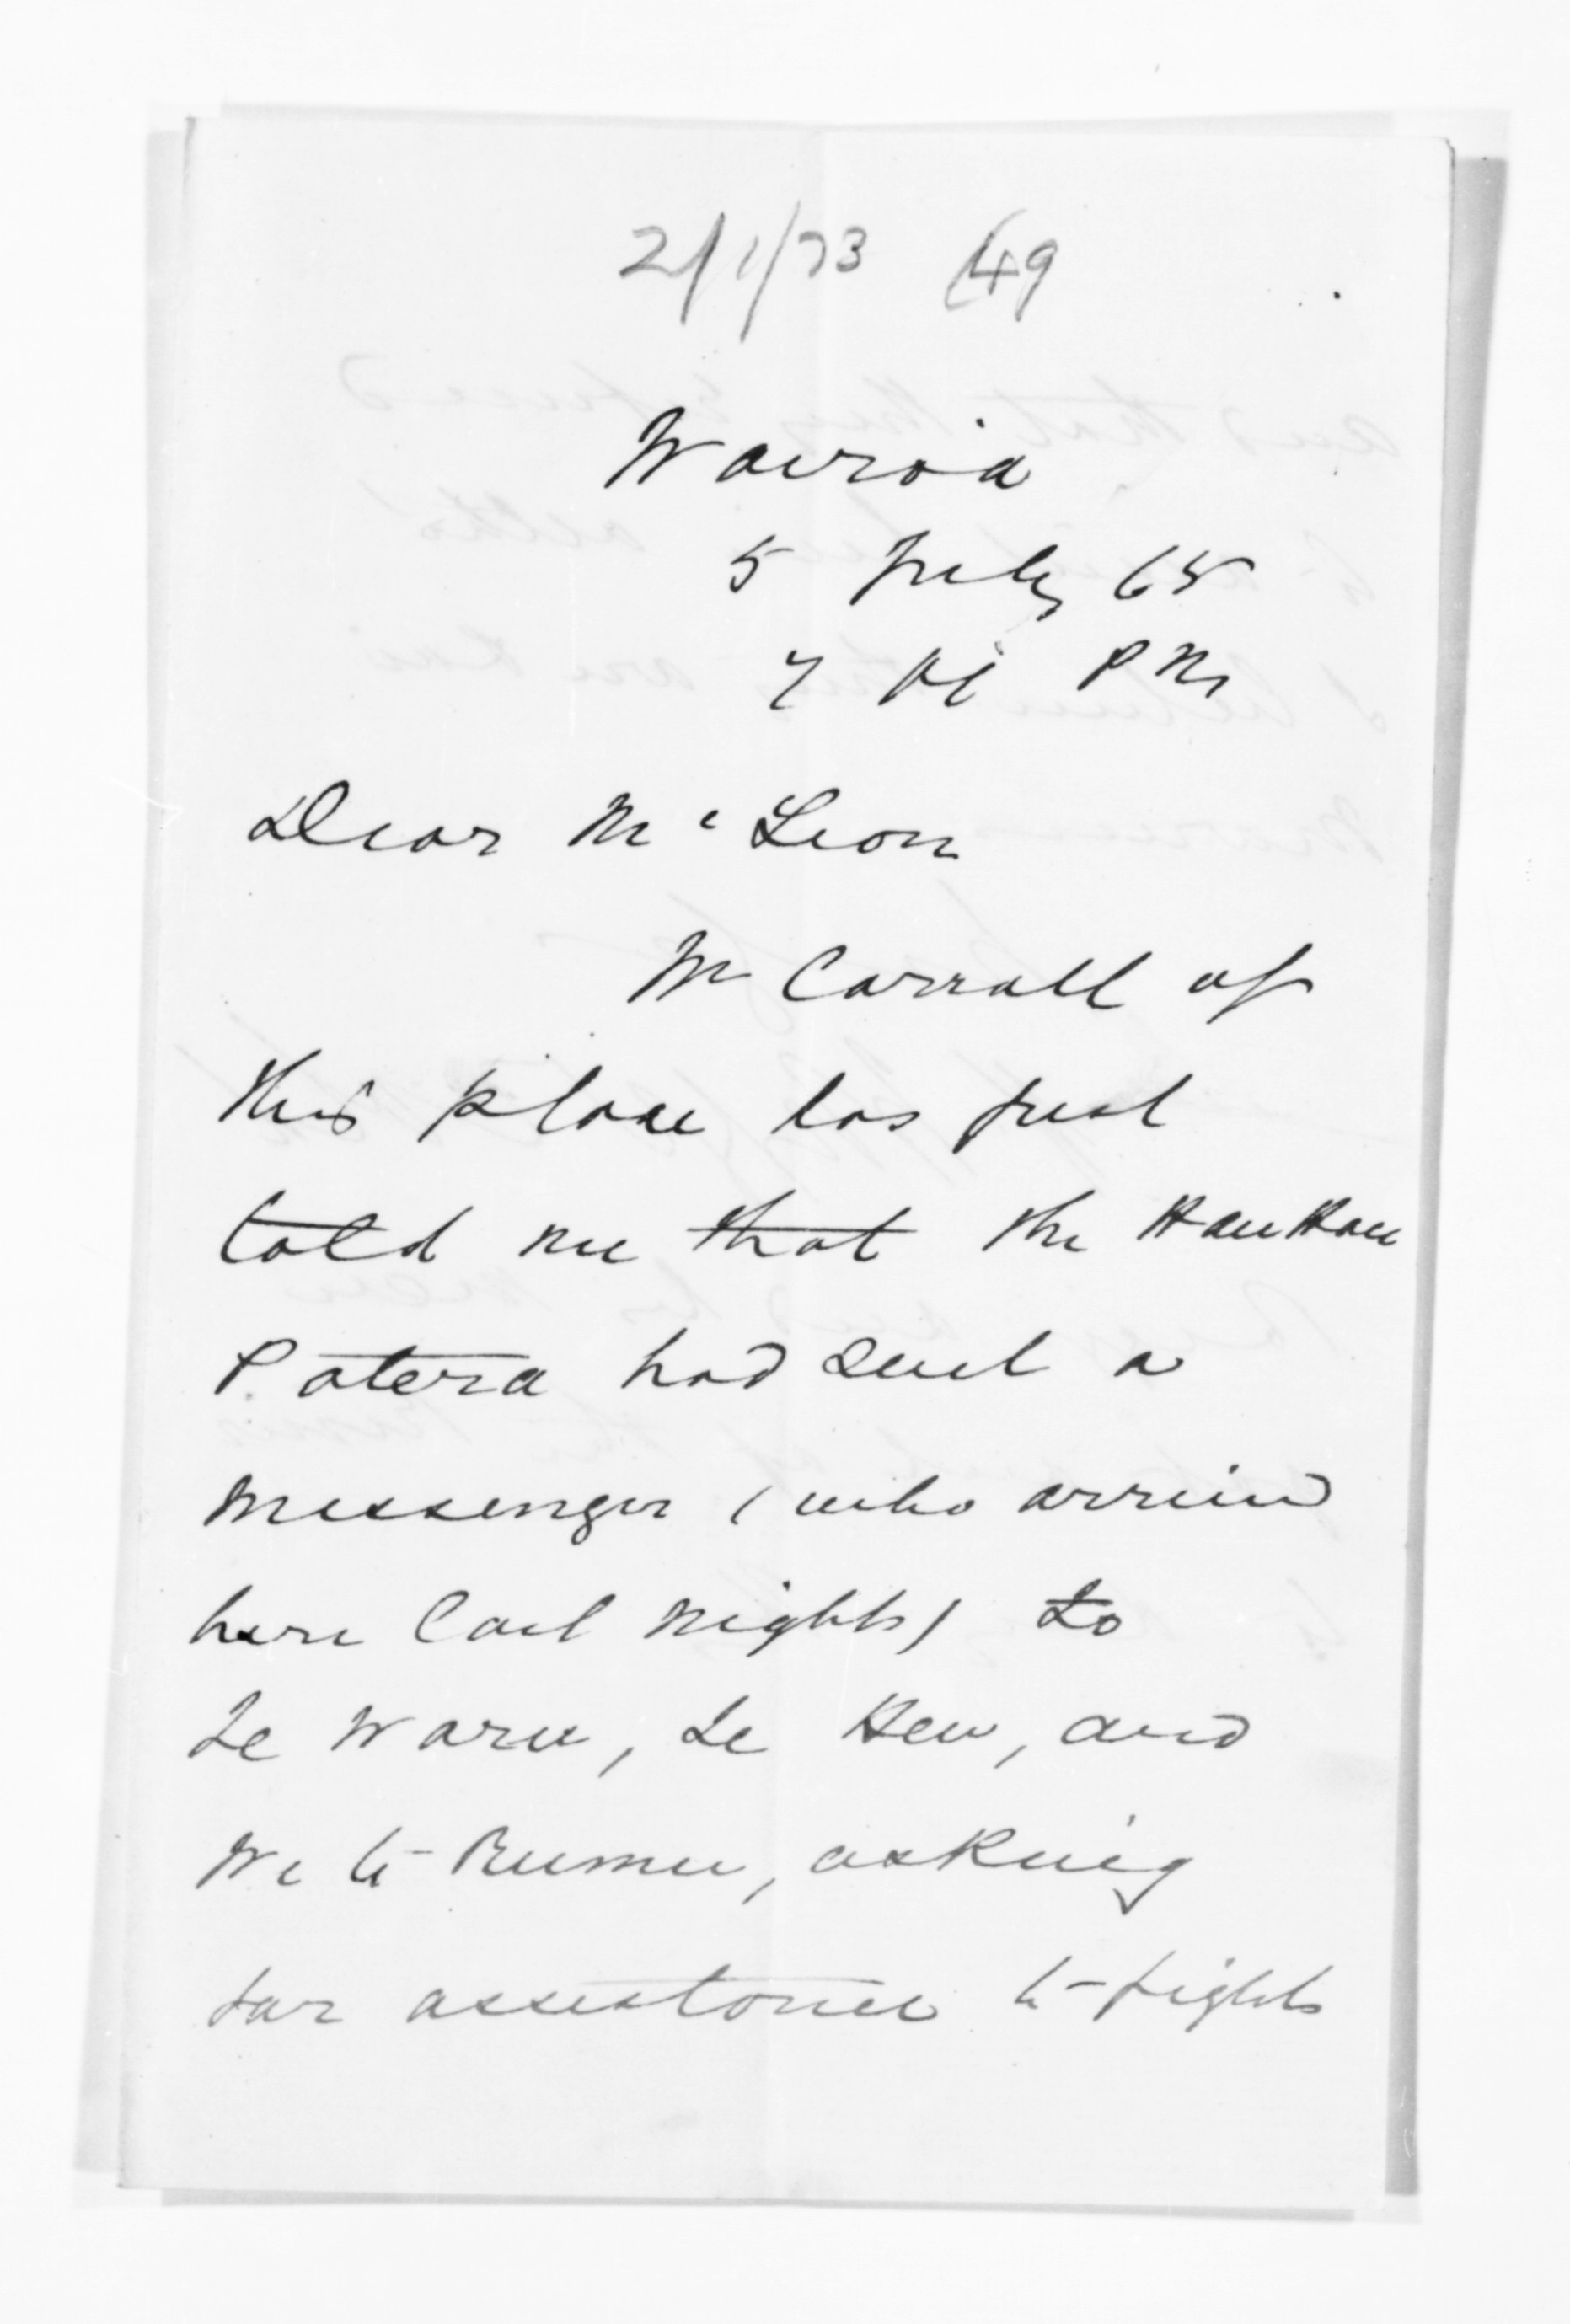 2/1/73 (49
Wairoa
5 July 65
7 P M
Dear McLean
Mr Carroll of
this place has just
told me that the HauHau
Patera had sent a
messenger (who arrived
here last night) to
Te Waru, Te
We to Rumu, asking
for assistance to fight